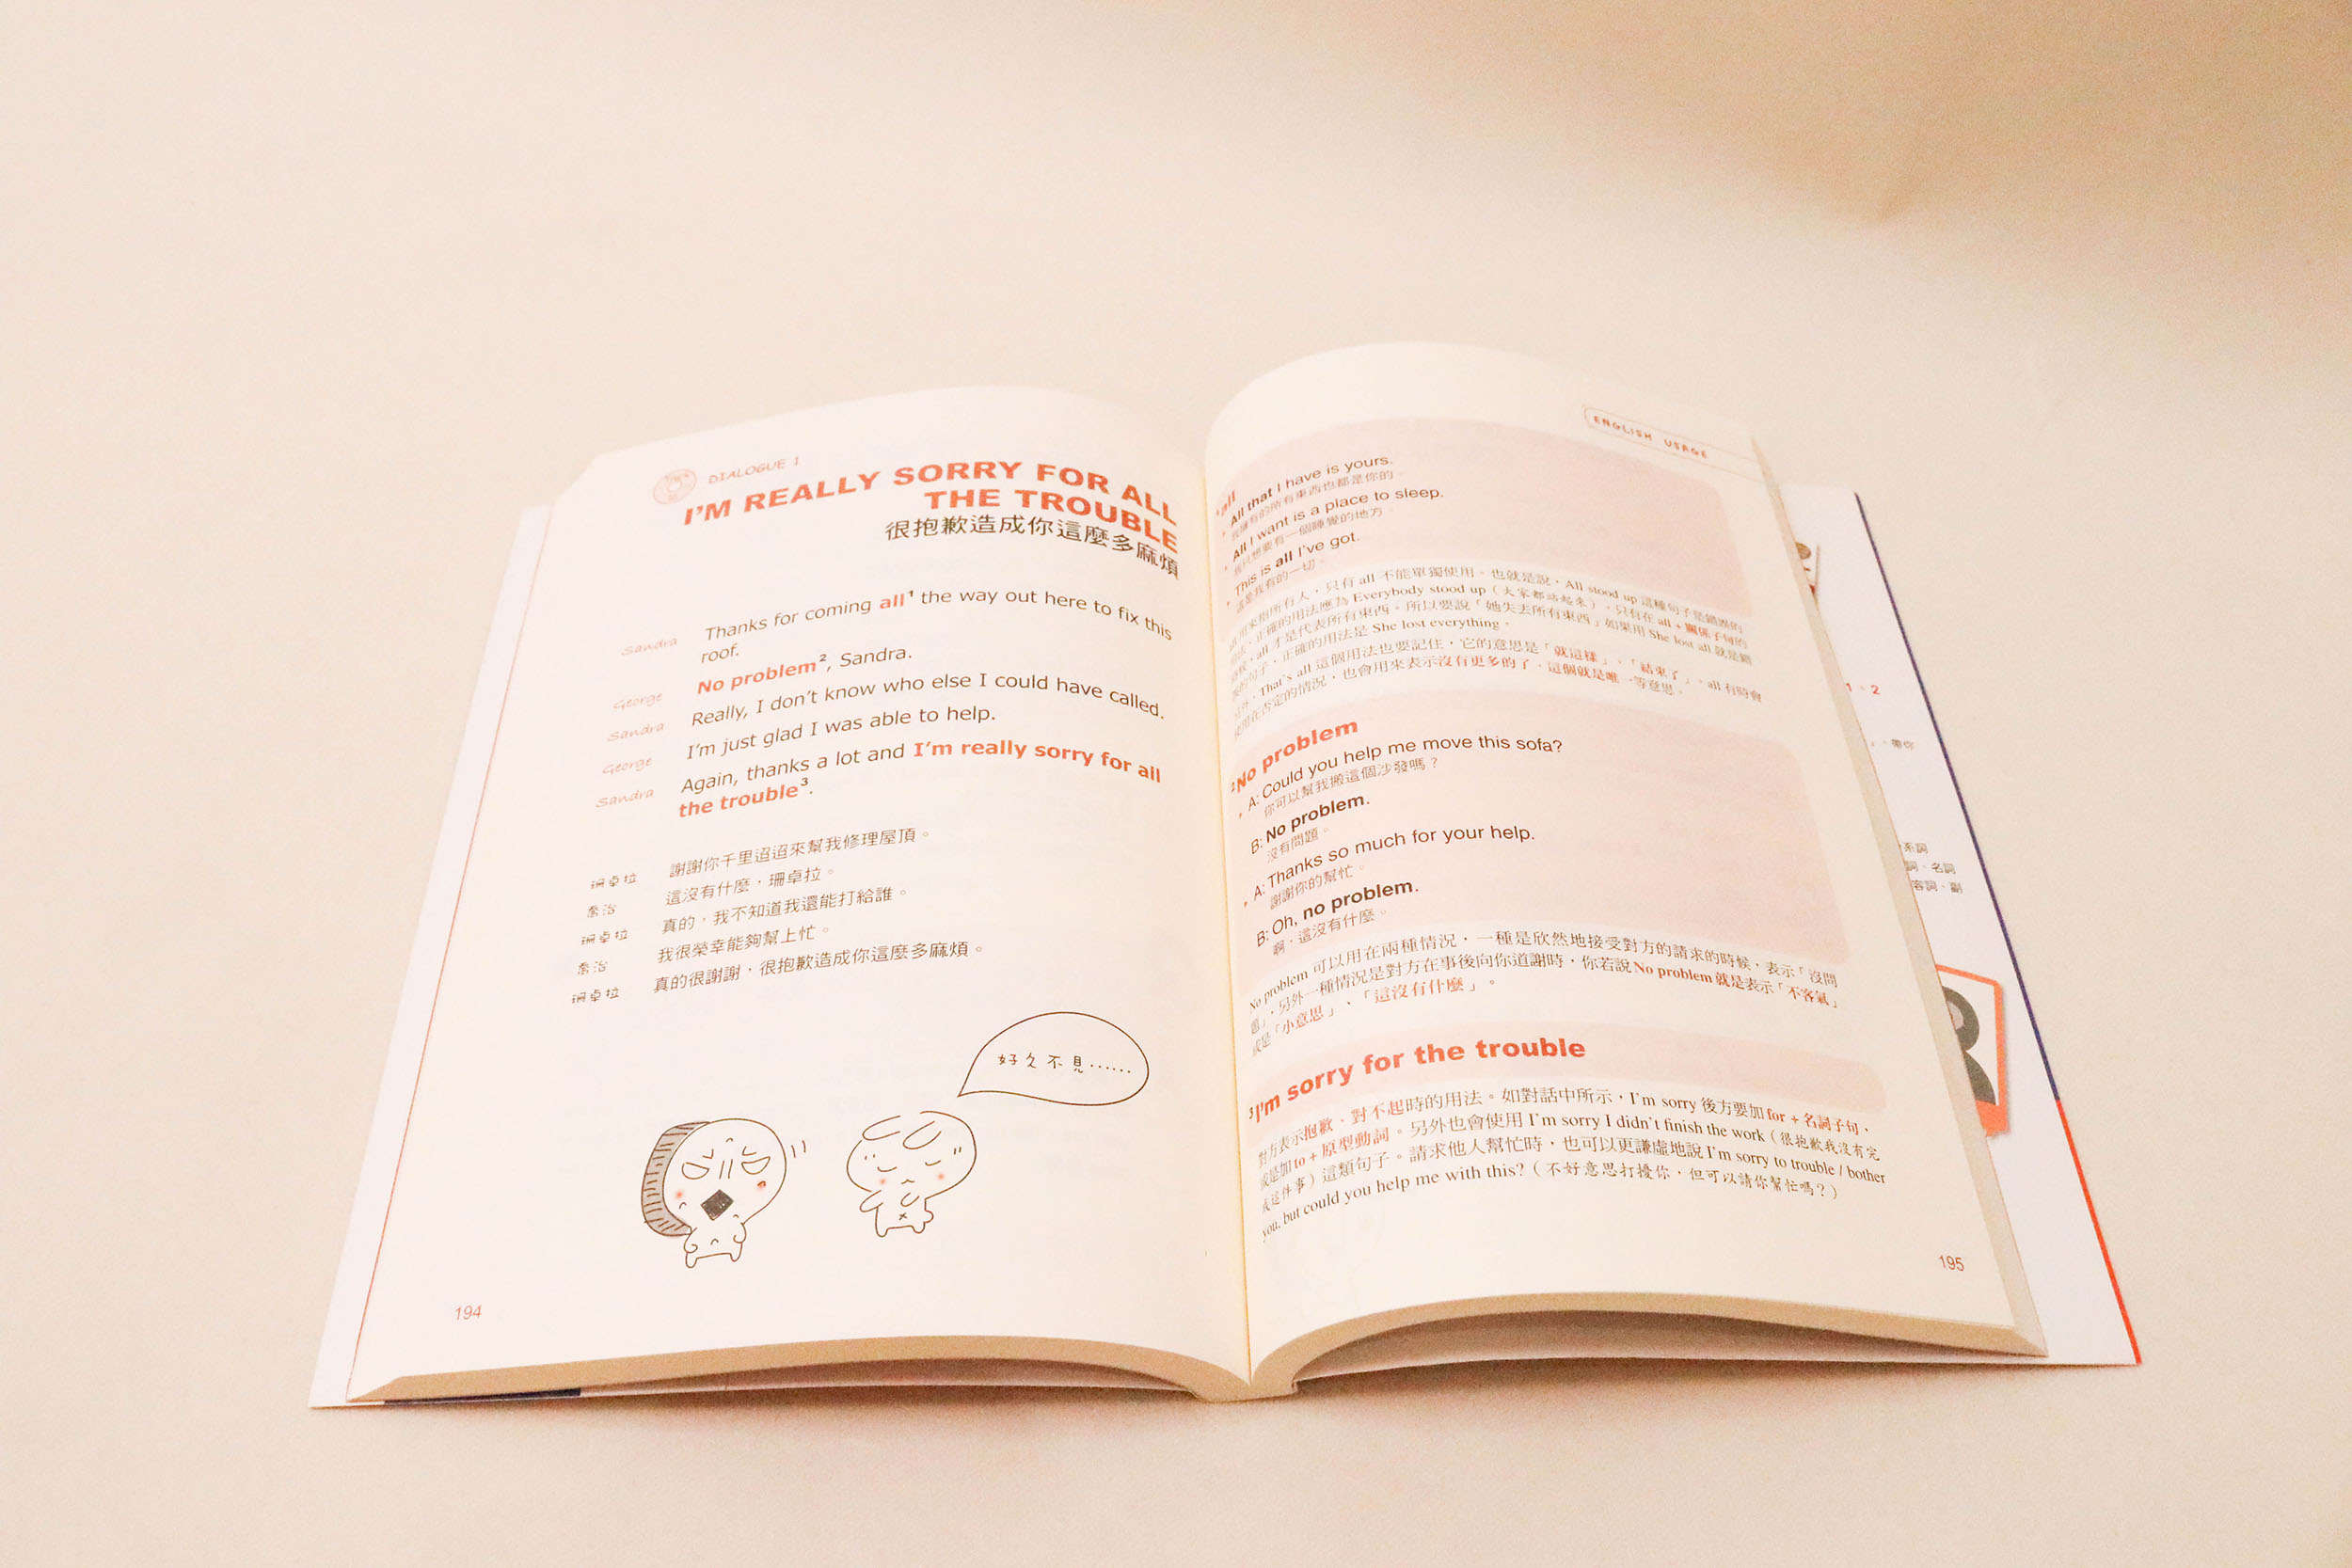 DIALOGUE 1
I'M REALLY SORRY FOR ALL
THE TROUBLE
很抱歉造成你這麼多麻煩
Sandra Thanks for coming all¹ the way out here to fix this
roof.
George No problem², Sandra.
Sandra Really, I don't know who else I could have called.
George I'm just glad I was able to help.
Sandra Again, thanks a lot and I'm really sorry for all
the trouble³.
珊卓拉 謝謝你千里迢迢來幫我修理屋頂。
喬治 這沒有什麼，珊卓拉。
珊卓拉 真的，我不知道我還能打給誰。
喬治 我很榮幸能夠幫上忙。
珊卓拉 真的很謝謝，很抱歉造成你這麼多麻煩。
好久不見……
194
ENGLISH USAGE
¹all
All that I have is yours.
我擁有的所有東西也都是你的。
All I want is a place to sleep.
我只想要有一個睡覺的地方。
This is all I've got.
這是我有的一切。
用來指所有人，只有 all 不能單獨使用。也就是說，All stood up 這種句子是錯誤的
，正確的用法應為 Everybody stood up（大家都站起來）。只有在 all + 關係子句的
，all 才是代表所有東西。所以要說「她失去所有東西」如果用 She lost all 就是錯
的句子，正確的用法是 She lost everything。
另外，That's all 這個用法也要記住，它的意思是「就這樣」、「結束了」。all 有時會
使用在否定的情況，也會用來表示沒有更多的了，這個就是唯一等意思。
²No problem
A: Could you help me move this sofa?
你可以幫我搬這個沙發嗎？
B: No problem.
沒有問題。
A: Thanks so much for your help.
謝謝你的幫忙。
B: Oh, no problem.
啊，這沒有什麼。
No problem 可以用在兩種情況，一種是欣然地接受對方的請求的時候，表示「沒問
題」，另外一種情況是對方在事後向你道謝時，你若說 No problem 就是表示「不客氣」
或是「小意思」、「這沒有什麼」。
³I'm sorry for the trouble
對方表示抱歉、對不起時的用法。如對話中所示，I'm sorry 後方要加 for + 名詞子句，
或是加 to + 原型動詞。另外也會使用 I'm sorry I didn't finish the work（很抱歉我沒有完
成這件事）這類句子。請求他人幫忙時，也可以更謙虛地說 I'm sorry to trouble / bother
you, but could you help me with this?（不好意思打擾你，但可以請你幫忙嗎？）
195
1、2
，帶你
系詞
詞、名詞
容詞、副